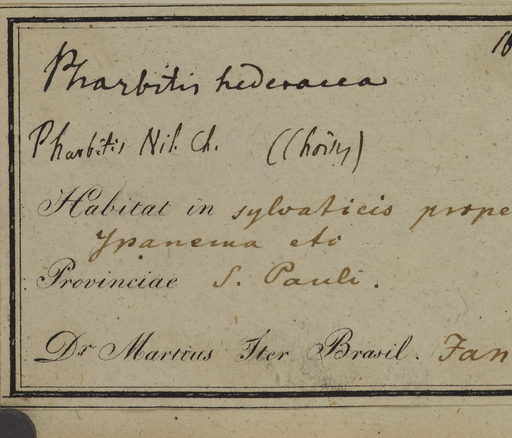 Pharbitis hederacea
Pharbitis Nil. Ch. (Choisy)
Habitat in sylvaticis prope
Ypanema etc
Provinciae S. Pauli.
Dr Martius Iter Brasil. Jan